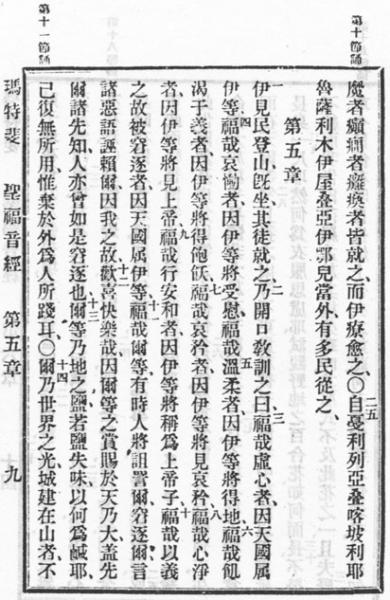 第十節誦
二五
魔者、癲癎者、癱瘓者、皆就之、而伊療愈之、○自戞利列亞、叠喀坡利、耶
魯薩利木、伊屋叠亞、伊鄂見當外、有多民從之、
第五章
一 二 三
伊見民登山、旣坐、其徒就之、乃開口敎訓之曰、福哉虛心者、因天國屬
四 五 六
伊等、福哉哀慟者、因伊等將受慰、福哉溫柔者、因伊等將得地、福哉飢
七 八
渴于義者、因伊等將得飽飫、福哉哀矜者、因伊等將見哀矜、福哉心淨
九 十
者、因伊等將見上帝、福哉行安和者、因伊等將稱爲上帝子、福哉以義
十一
之故被窘逐者、因天國屬伊等、福哉爾等、有時人將詛詈爾、窘逐爾、言
十二
諸惡語誣賴爾、因我之故、歡喜快樂哉、因爾等之賞賜於天乃大、盖先
十三
爾諸先知人、亦曾如是窘逐也、爾等乃地之鹽、若鹽失味、以何爲鹹耶、
十四
己復無所用、惟棄於外、爲人所踐耳、○爾乃世界之光、城建在山者、不
第十一節誦
瑪特斐 聖福音經 第五章 九